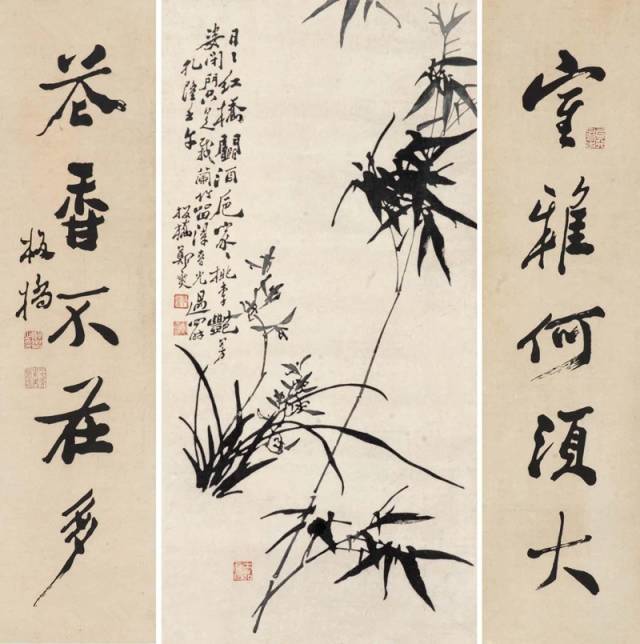 室雅何須大
日々紅橋鬭酒卮家々桃李艷芳
姿閉門只是栽蘭竹留得春光過四時
乾隆壬午
板橋鄭燮
花香不在多
板橋